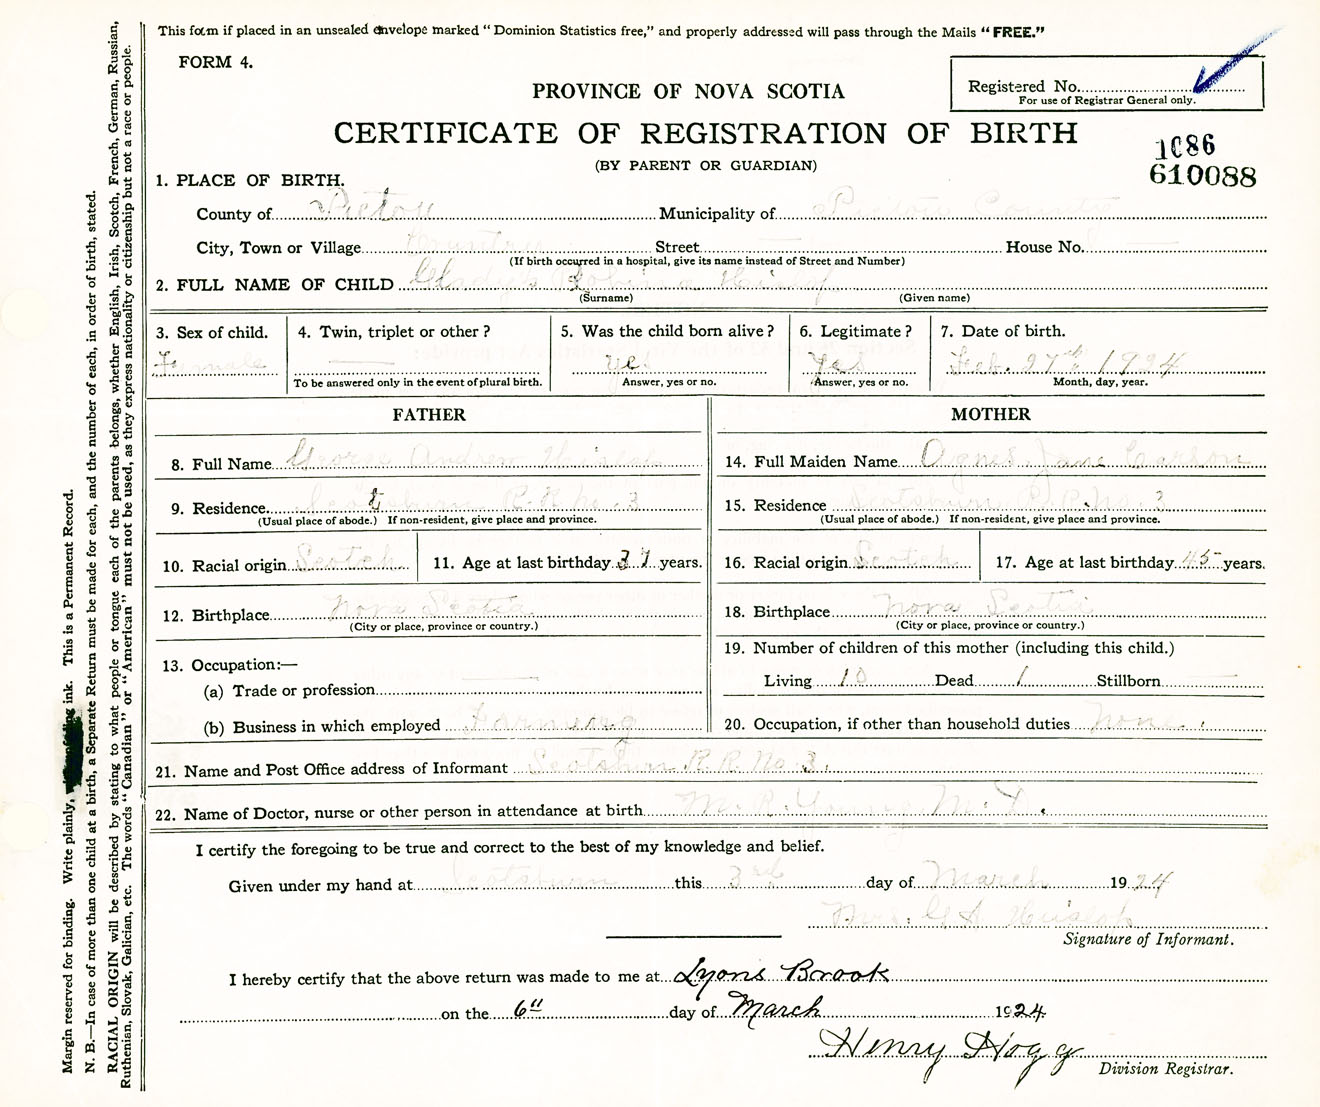 This form if placed in an unsealed envelope marked "Dominion Statistics free," and properly addressed will pass through the Mails "FREE."
FORM 4.
Registered No.
For use of Registrar General only.
PROVINCE OF NOVA SCOTIA
CERTIFICATE OF REGISTRATION OF BIRTH
(BY PARENT OR GUARDIAN)
1086
610088
1. PLACE OF BIRTH.
County of Pictou Municipality of Pictou County
City, Town or Village Street — House No. —
(If birth occurred in a hospital, give its name instead of Street and Number)
2. FULL NAME OF CHILD Gladys Robina Hislop
(Surname) (Given name)
3. Sex of child. 4. Twin, triplet or other? 5. Was the child born alive? 6. Legitimate? 7. Date of birth.
Female — yes Yes Feb. 27th 1924
To be answered only in the event of plural birth. Answer, yes or no. Answer, yes or no. Month, day, year.
FATHER MOTHER
8. Full Name George Andrew Hislop 14. Full Maiden Name Agnes Jane Carson
9. Residence Scotsburn R.R. No. 3 15. Residence Scotsburn R.R. No. 3
(Usual place of abode.) If non-resident, give place and province. (Usual place of abode.) If non-resident, give place and province.
10. Racial origin Scotch 11. Age at last birthday 37 years. 16. Racial origin Scotch 17. Age at last birthday 45 years.
12. Birthplace Nova Scotia 18. Birthplace Nova Scotia
(City or place, province or country.) (City or place, province or country.)
13. Occupation:— 19. Number of children of this mother (including this child.)
(a) Trade or profession — Living 10 Dead 1 Stillborn —
(b) Business in which employed Farming 20. Occupation, if other than household duties None.
21. Name and Post Office address of Informant Scotsburn R.R. No 3.
22. Name of Doctor, nurse or other person in attendance at birth M. R. Young M.D.
I certify the foregoing to be true and correct to the best of my knowledge and belief.
Given under my hand at Scotsburn this 3rd day of March 1924
Mrs. G A Hislop
Signature of Informant.
I hereby certify that the above return was made to me at Lyons Brook
on the 6" day of March 1924
Henry Hogg
Division Registrar.
Margin reserved for binding. Write plainly, ink. This is a Permanent Record.
N. B.—In case of more than one child at a birth, a Separate Return must be made for each, and the number of each, in order of birth, stated.
RACIAL ORIGIN will be described by stating to what people or tongue each of the parents belongs, whether English, Irish, Scotch, French, German, Russian,
Ruthenian, Slovak, Galician, etc. The words "Canadian" or "American" must not be used, as they express nationality or citizenship but not a race or people.